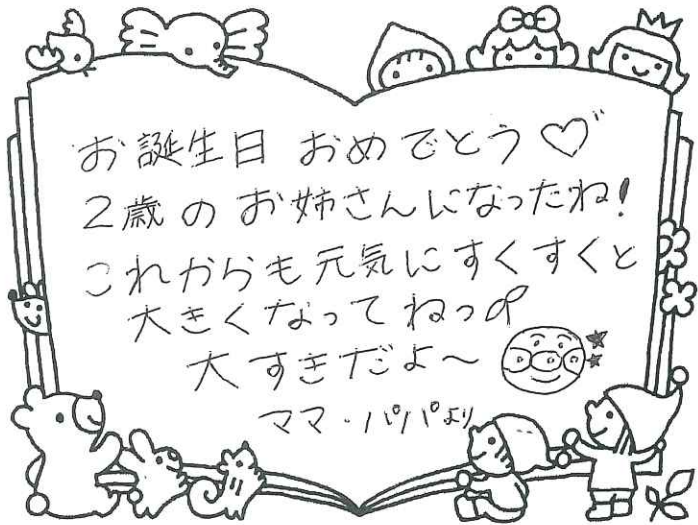 お誕生日 おめでとう♡
2歳の お姉さんになったね!
これからも元気にすくすくと
大きくなってねっ
大すきだよ~
ママ・パパより